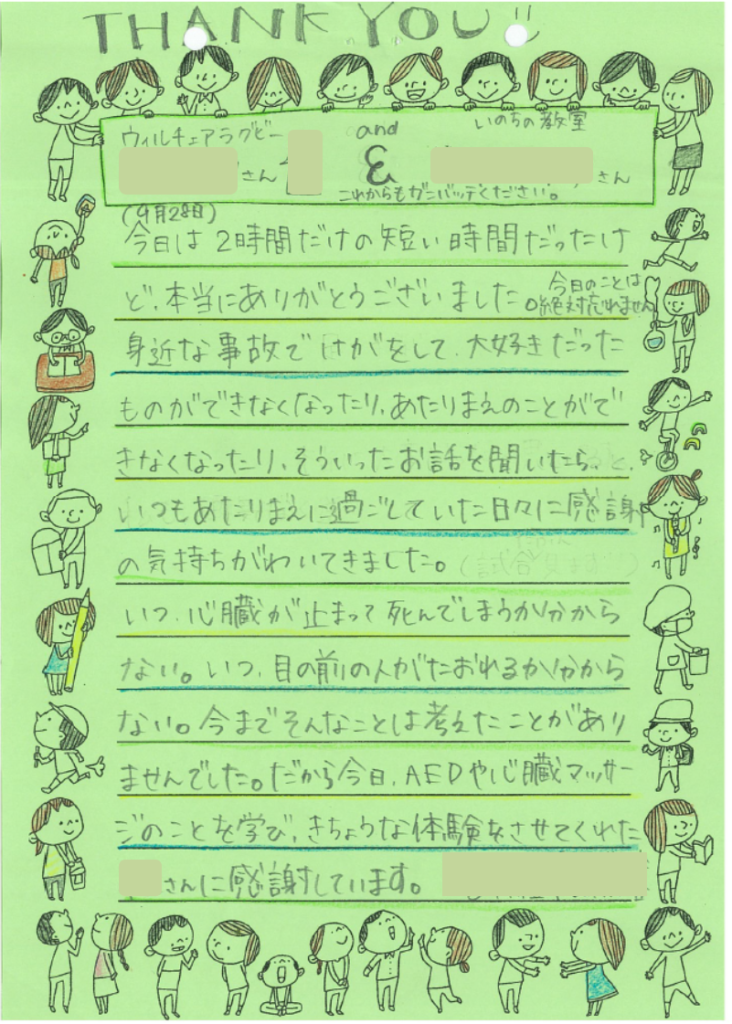 THANK YOU!!
ウィルチェアラグビー and いのちの教室
さん & さん
これからもガンバッテください。
(9月28日)
今日は2時間だけの短い時間だったけ
ど、本当にありがとうございました。今日のことは
絶対忘れません
身近な事故でけがをして、大好きだった
ものができなくなったり、あたりまえのことがで
きなくなったり、そういったお話を聞いたら、
いつもあたりまえに過ごしていた日々に感謝
の気持ちがわいてきました。
いつ、心臓が止まって死んでしまうか分から
ない。いつ、目の前の人がたおれるか分から
ない。今までそんなことは考えたことがあり
ませんでした。だから今日、AEDや心臓マッサー
ジのことを学び、きちょうな体験をさせてくれた
さんに感謝しています。